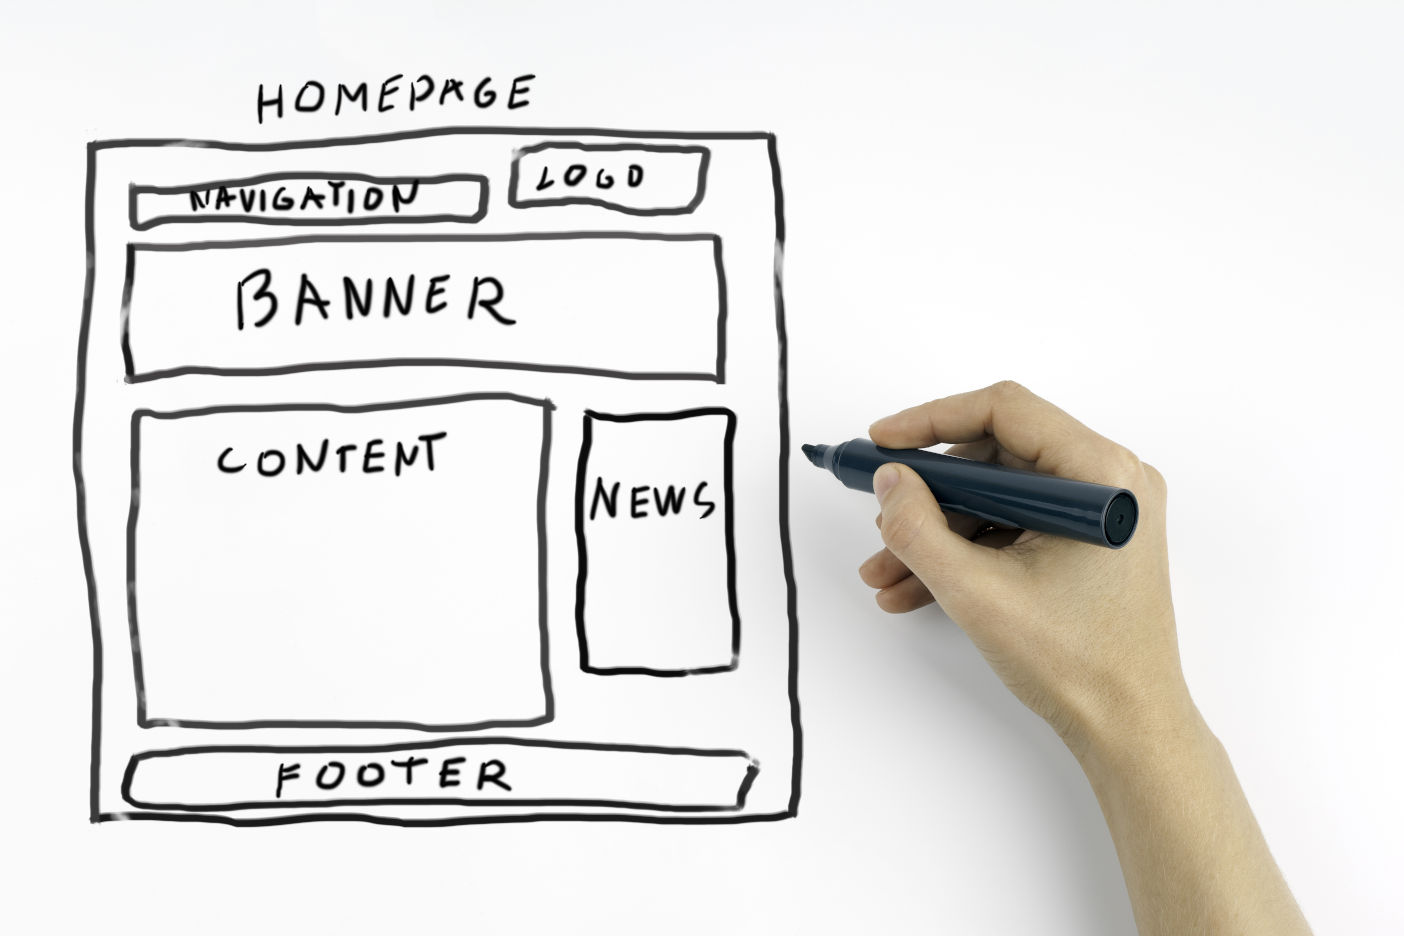 HOMEPAGE
NAVIGATION
LOGO
BANNER
CONTENT
NEWS
FOOTER